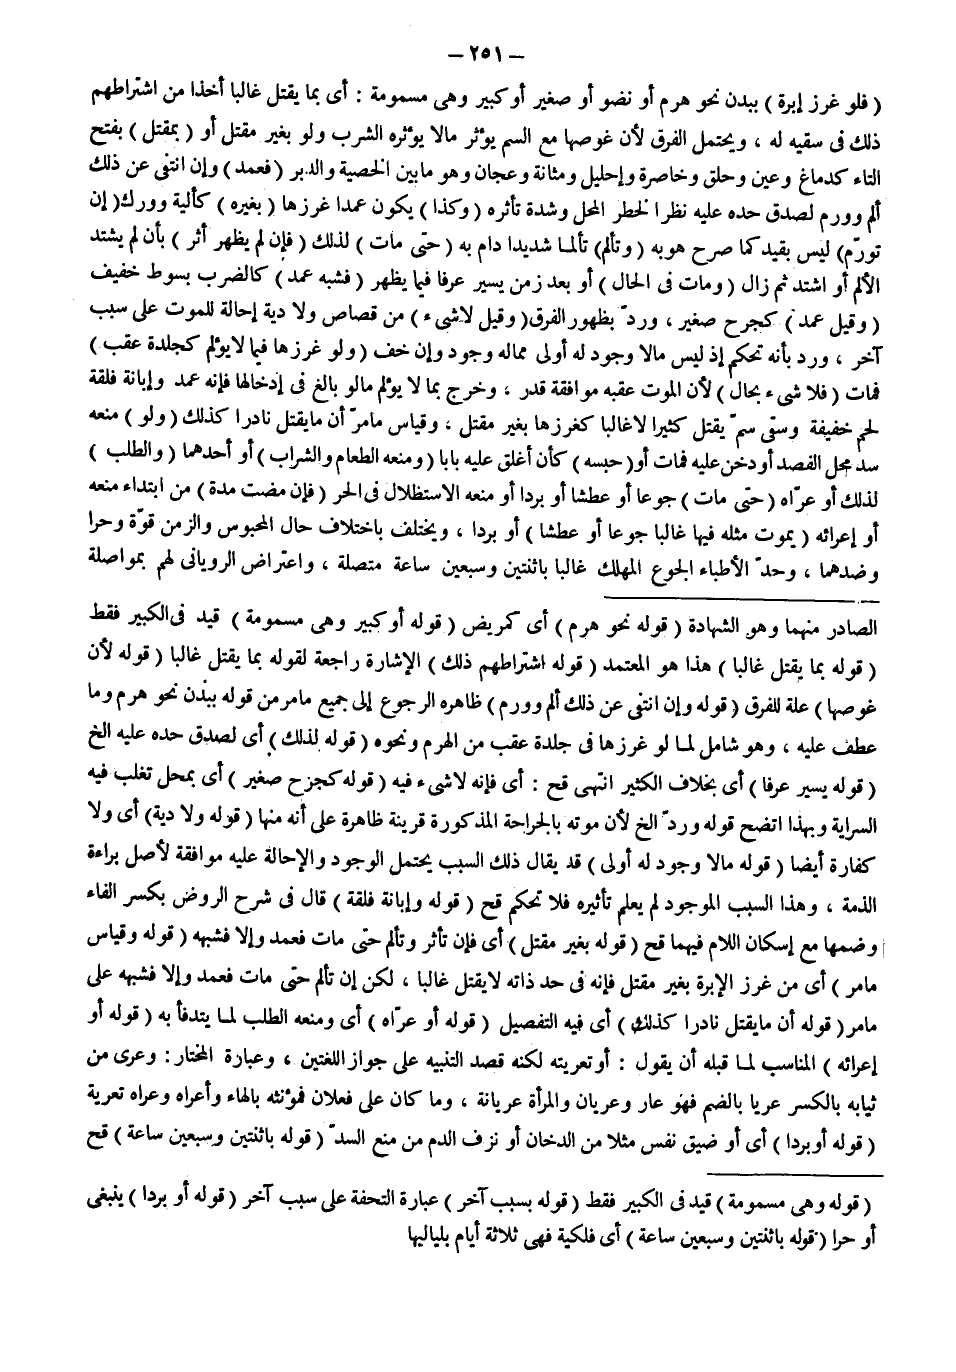 – ٢٥١ –
( فلو غرز إبرة ) ببدن نحو هرم أو نضو أو صغير أو كبير وهى مسمومة : أى بما يقتل غالبا أخذا من اشتراطهم
ذلك فى سقيه له ، ويحتمل الفرق لأن غوصها مع السم يؤثر مالا يؤثره الشرب ولو بغير مقتل أو ( بمقتل ) بفتح
التاء كدماغ وعين وحلق وخاصرة وإحليل ومثانة وعجان وهو مابين الخصية والدبر ( فعمد ) وإن انتفى عن ذلك
ألم وورم لصدق حده عليه نظرا لخطر المحل وشدة تأثره ( وكذا ) يكون عمدا غرزها ( بغيره ) كألية وورك ( إن
تورّم ) ليس بقيد كما صرح هو به ( وتألم ) تألمـا شديدا دام به ( حتى مات ) لذلك ( فإن لم يظهر أثر ) بأن لم يشتد
الألم أو اشتد ثم زال ( ومات فى الحال ) أو بعد زمن يسير عرفا فيما يظهر ( فشبه عمد ) كالضرب بسوط خفيف
( وقيل عمد ) كجرح صغير ، وردّ بظهور الفرق ( وقيل لاشىء ) من قصاص ولا دية إحالة للموت على سبب
آخر ، ورد بأنه تحكم إذ ليس مالا وجود له أولى مماله وجود وإن خف ( ولو غرزها فيما لايؤلم كجلدة عقب )
فمات ( فلا شىء بحال ) لأن الموت عقبه موافقة قدر ، وخرج بما لا يؤلم مالو بالغ فى إدخالها فإنه عمد وإبانة فلقة
لحم خفيفة وسقى سمّ يقتل كثيرا لاغالبا كغرزها بغير مقتل ، وقياس مامرّ أن مايقتل نادرا كذلك ( ولو ) منعه
سد محل الفصد أو دخن عليه فمات أو ( حبسه ) كأن أغلق عليه بابا ( ومنعه الطعام والشراب ) أو أحدهما ( والطلب )
لذلك أو عرّاه ( حتى مات ) جوعا أو عطشا أو بردا أو منعه الاستظلال فى الحر ( فإن مضت مدة ) من ابتداء منعه
أو إعرائه ( يموت مثله فيها غالبا جوعا أو عطشا ) أو بردا ، ويختلف باختلاف حال المحبوس والزمن قوّة وحرا
وضدهما ، وحدّ الأطباء الجوع المهلك غالبا باثنتين وسبعين ساعة متصلة ، واعتراض الرويانى لهم بمواصلة
الصادر منهما وهو الشهادة ( قوله نحو هرم ) أى كمريض ( قوله أو كبير وهى مسمومة ) قيد فى الكبير فقط
( قوله بما يقتل غالبا ) هذا هو المعتمد ( قوله اشتراطهم ذلك ) الإشارة راجعة لقوله بما يقتل غالبا ( قوله لأن
غوصها ) علة للفرق ( قوله وإن انتفى عن ذلك ألم وورم ) ظاهره الرجوع إلى جميع مامر من قوله ببدن نحو هرم وما
عطف عليه ، وهو شامل لمـا لو غرزها فى جلدة عقب من الهرم ونحوه ( قوله لذلك ) أى لصدق حده عليه الخ
( قوله يسير عرفا ) أى بخلاف الكثير انتهى قح : أى فإنه لاشىء فيه ( قوله كجرح صغير ) أى بمحل تغلب فيه
السراية وبهذا اتضح قوله وردّ الخ لأن موته بالجراحة المذكورة قرينة ظاهرة على أنه منها ( قوله ولا دية ) أى ولا
كفارة أيضا ( قوله مالا وجود له أولى ) قد يقال ذلك السبب يحتمل الوجود والإحالة عليه موافقة لأصل براءة
الذمة ، وهذا السبب الموجود لم يعلم تأثيره فلا تحكم قح ( قوله وإبانة فلقة ) قال فى شرح الروض بكسر الفاء
وضمها مع إسكان اللام فيهما قح ( قوله بغير مقتل ) أى فإن تأثر وتألم حتى مات فعمد وإلا فشبهه ( قوله وقياس
مامر ) أى من غرز الإبرة بغير مقتل فإنه فى حد ذاته لايقتل غالبا ، لكن إن تألم حتى مات فعمد وإلا فشبهه على
مامر ( قوله أن مايقتل نادرا كذلك ) أى فيه التفصيل ( قوله أو عرّاه ) أى ومنعه الطلب لمـا يتدفأ به ( قوله أو
إعرائه ) المناسب لمـا قبله أن يقول : أو تعريته لكنه قصد التنبيه على جواز اللغتين ، وعبارة المختار : وعرى من
ثيابه بالكسر عريا بالضم فهو عار وعريان والمرأة عريانة ، وما كان على فعلان فمؤنثه بالهاء وأعراه وعراه تعرية
( قوله أو بردا ) أى أو ضيق نفس مثلا من الدخان أو نزف الدم من منع السدّ ( قوله باثنتين وسبعين ساعة ) قح
( قوله وهى مسمومة ) قيد فى الكبير فقط ( قوله بسبب آخر ) عبارة التحفة على سبب آخر ( قوله أو بردا ) ينبغى
أو حرا ( قوله باثنتين وسبعين ساعة ) أى فلكية فهى ثلاثة أيام بلياليها